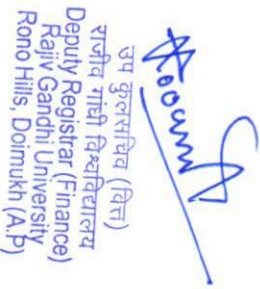 उप कुलसचिव (वित्त)
राजीव गांधी विश्वविद्यालय
Deputy Registrar (Finance)
Rajiv Gandhi University
Rono Hills, Doimukh (A.P)